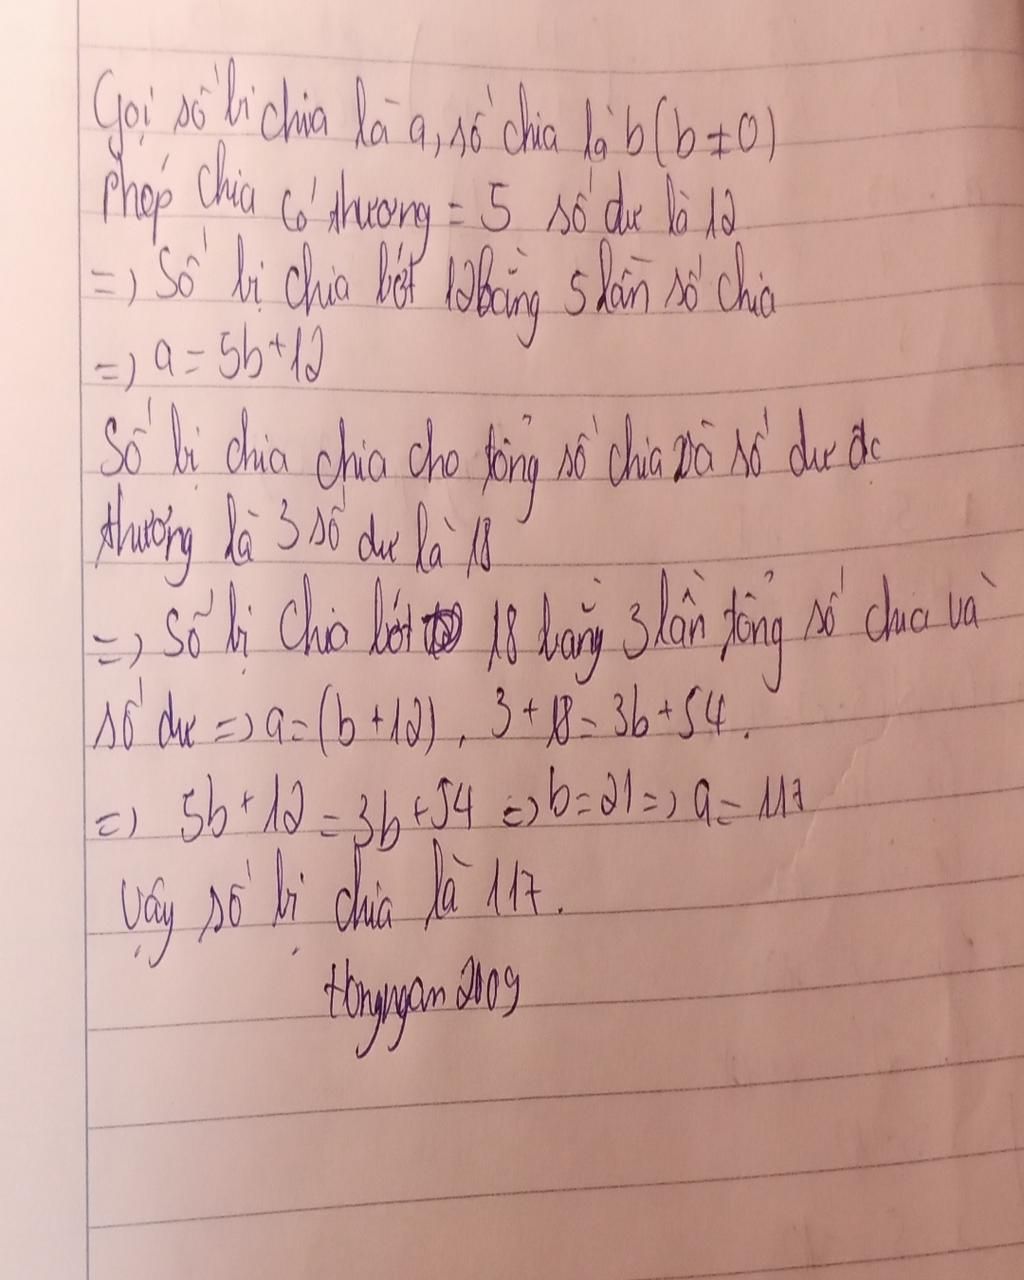 Gọi số bị chia là a, số chia là b (b ≠ 0)
Phép chia có thương = 5 số dư là 12
=> Số bị chia bớt 12 bằng 5 lần số chia
=> a = 5b + 12
Số bị chia chia cho tổng số chia và số dư đc
thương là 3 số dư là 18
=> Số bị chia bớt 18 bằng 3 lần tổng số chia và
số dư => a = (b + 12) . 3 + 18 = 3b + 54.
=> 5b + 12 = 3b + 54 => b = 21 => a = 117
Vậy số bị chia là 117.
Hongngan2009